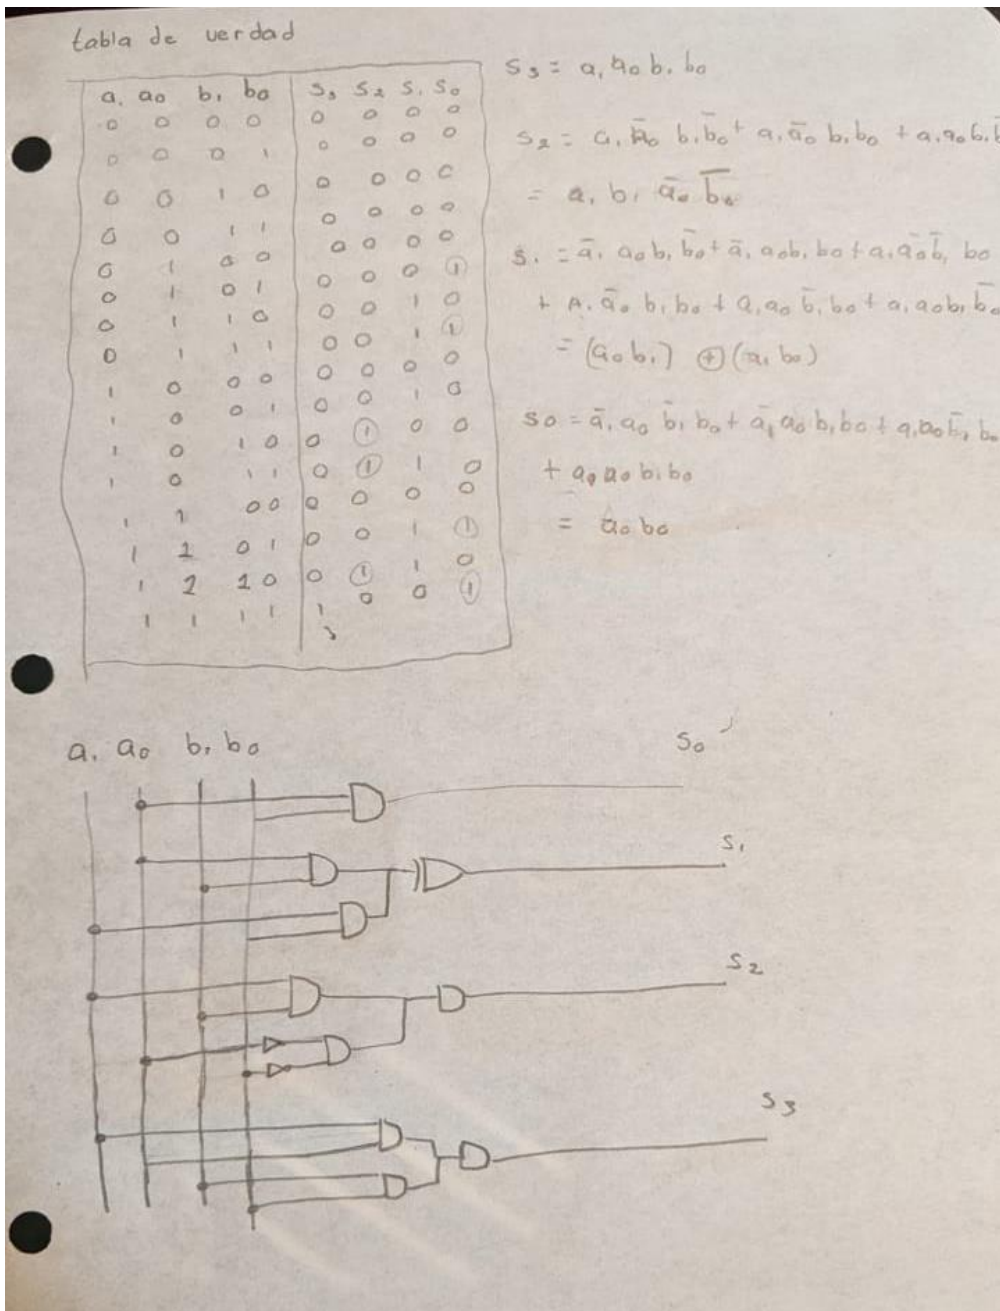 tabla de verdad
a₁ a₀ b₁ b₀ S₃ S₂ S₁ S₀
0 0 0 0 0 0 0 0
0 0 0 1 0 0 0 0
0 0 1 0 0 0 0 0
0 0 1 1 0 0 0 0
0 1 0 0 0 0 0 0
0 1 0 1 0 0 0 1
0 1 1 0 0 0 1 0
0 1 1 1 0 0 1 1
1 0 0 0 0 0 0 0
1 0 0 1 0 0 1 0
1 0 1 0 0 1 0 0
1 0 1 1 0 1 1 0
1 1 0 0 0 0 0 0
1 1 0 1 0 0 1 1
1 1 1 0 0 1 1 0
1 1 1 1 1 0 0 1
S₃ = a₁ a₀ b₁ b₀
S₂ = a₁ ā₀ b₁ b̄₀ + a₁ ā₀ b₁ b₀ + a₁ a₀ b₁
= a₁ b₁ \overline{a₀ b₀}
S₁ = ā₁ a₀ b₁ b̄₀ + ā₁ a₀ b₁ b₀ + a₁ ā₀ b̄₁ b₀
+ A₁ ā₀ b₁ b₀ + a₁ a₀ b̄₁ b₀ + a₁ a₀ b₁ b̄₀
= (a₀ b₁) ⊕ (a₁ b₀)
S₀ = ā₁ a₀ b̄₁ b₀ + ā₁ a₀ b₁ b₀ + a₁ a₀ b̄₁ b₀
+ a₀ a₀ b₁ b₀
= a₀ b₀
a₁ a₀ b₁ b₀
S₀
S₁
S₂
S₃